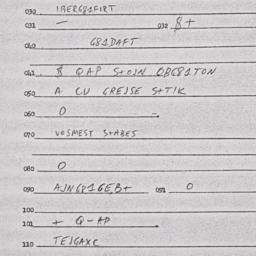 030 IBERG81FIRT
031 — 032 $+
040 G81DAFT
041 $ QAP S+OIN OBG81TON
050 A CU GREISE S+TIK
060 O -.
070 VOSMEST S+ABES
080 O
090 AJNG81GEB+ 091 O
100
101 + Q-AP
110 TEIGAXC